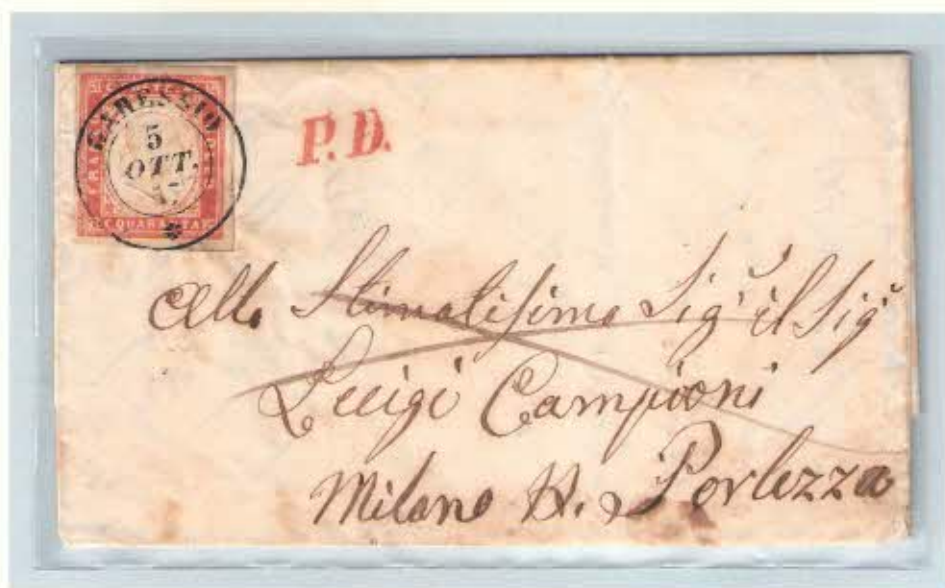 GARESSIO
5
OTT.
57
C. QUARANTA
P.D.
Allo Stimatisimo Sig.r il Sig.r
Luigi Campioni
Milano N. Porlezza